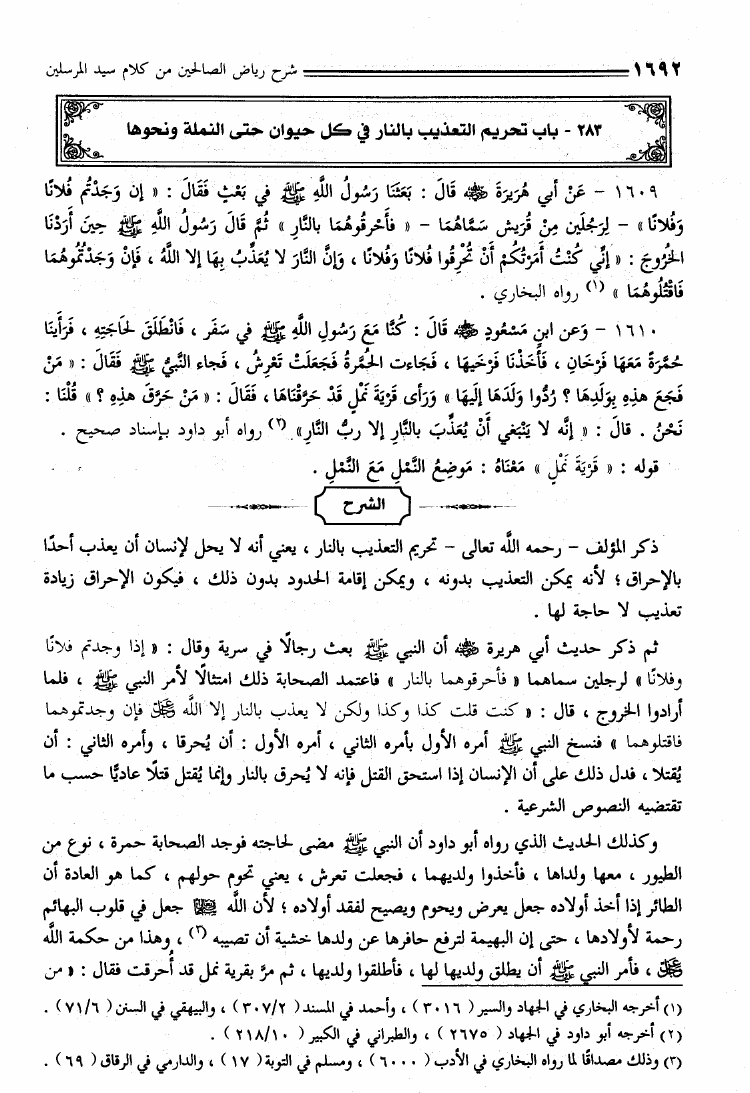 ١٦٩٢ شرح رياض الصالحين من كلام سيد المرسلين
٢٨٣ - باب تحريم التعذيب بالنار في كل حيوان حتى النملة ونحوها
١٦٠٩ - عَنْ أبي هُرَيرَةَ ﵁ قَالَ : بَعَثَنَا رَسُولُ اللَّهِ ﷺ في بَعْثٍ فَقَالَ : « إن وَجَدْتُم فُلانًا
وَفُلانًا » - لِرَجُلَين مِنْ قُرَيش سَمَّاهُمَا - « فأَحْرِقُوهُمَا بالنَّارِ » ثُمَّ قَالَ رَسُولُ اللَّهِ ﷺ حِينَ أَرَدْنَا
الخُرُوجَ : « إنِّي كُنْتُ أمَرْتُكُمْ أنْ تُحْرِقُوا فُلانًا وَفُلانًا ، وإنَّ النَّارَ لا يُعَذِّبُ بِهَا إلا اللَّهُ ، فَإنْ وَجَدْتُمُوهُمَا
فَاقْتُلُوهُمَا » (١) رواه البخاري .
١٦١٠ - وَعن ابنِ مَسْعُودٍ ﵁ قَالَ : كُنَّا مَعَ رَسُولِ اللَّهِ ﷺ في سَفَر ، فَانْطَلَقَ لحَاجَتِهِ ، فَرَأَينَا
حُمَّرَةً مَعَهَا فَرْخَان ، فَأَخَذْنَا فَرْخَيهَا ، فَجَاءت الحُمَّرةُ فَجَعَلَتْ تَعْرِشُ ، فَجاء النَّبيُّ ﷺ فَقَالَ : « مَنْ
فَجَعَ هذِهِ بِوَلَدِهَا ؟ رُدُّوا وَلَدَهَا إلَيهَا » وَرَأى قَرْيَةَ نَمْلٍ قَدْ حَرَّقْنَاهَا ، فَقَالَ : « مَنْ حَرَّقَ هذِهِ ؟ » قُلْنَا :
نَحْنُ . قالَ : « إنَّه لا يَنْبَغي أنْ يُعَذِّبَ بالنَّارِ إلا ربُّ النَّارِ» . (٢) رواه أبو داود بإسناد صحيح .
قوله : « قَرْيَةَ نَمْلٍ » مَعْنَاهُ : مَوضِعُ النَّمْلِ مَعَ النَّمْلِ .
الشرح
ذكر المؤلف - رحمه اللَّه تعالى - تحريم التعذيب بالنار ، يعني أنه لا يحل لإنسان أن يعذب أحدًا
بالإحراق ؛ لأنه يمكن التعذيب بدونه ، ويمكن إقامة الحدود بدون ذلك ، فيكون الإحراق زيادة
تعذيب لا حاجة لها .
ثم ذكر حديث أبي هريرة ﵁ أن النبي ﷺ بعث رجالًا في سرية وقال : « إذا وجدتم فلانًا
وفلانًا » لرجلين سماهما « فأحرقوهما بالنار » فاعتمد الصحابة ذلك امتثالًا لأمر النبي ﷺ ، فلما
أرادوا الخروج ، قال : « كنت قلت كذا وكذا ولكن لا يعذب بالنار إلا اللَّه ﷿ فإن وجدتموهما
فاقتلوهما » فنسخ النبي ﷺ أمره الأول بأمره الثاني ، أمره الأول : أن يُحرقا ، وأمره الثاني : أن
يُقتلا ، فدل ذلك على أن الإنسان إذا استحق القتل فإنه لا يُحرق بالنار وإنما يُقتل قتلًا عاديًّا حسب ما
تقتضيه النصوص الشرعية .
وكذلك الحديث الذي رواه أبو داود أن النبي ﷺ مضى لحاجته فوجد الصحابة حمرة ، نوع من
الطيور ، معها ولداها ، فأخذوا ولديهما ، فجعلت تعرش ، يعني تحوم حولهم ، كما هو العادة أن
الطائر إذا أخذ أولاده جعل يعرض ويحوم ويصيح لفقد أولاده ؛ لأن اللَّه جعل في قلوب البهائم
رحمة لأولادها ، حتى إن البهيمة لترفع حافرها عن ولدها خشية أن تصيبه (٣) ، وهذا من حكمة اللَّه
﷿ ، فأمر النبي ﷺ أن يطلق ولديها لها ، فأطلقوا ولديها ، ثم مرَّ بقرية نمل قد أُحرقت فقال : « من
(١) أخرجه البخاري في الجهاد والسير ( ٣٠١٦ ) ، وأحمد في المسند ( ٣٠٧/٢ ) ، والبيهقي في السنن ( ٧١/٦ ) .
(٢) أخرجه أبو داود في الجهاد ( ٢٦٧٥ ) ، والطبراني في الكبير ( ٢١٨/١٠ ) .
(٣) وذلك مصداقًا لما رواه البخاري في الأدب ( ٦٠٠٠ ) ، ومسلم في التوبة ( ١٧ ) ، والدارمي في الرقاق ( ٦٩ ) .